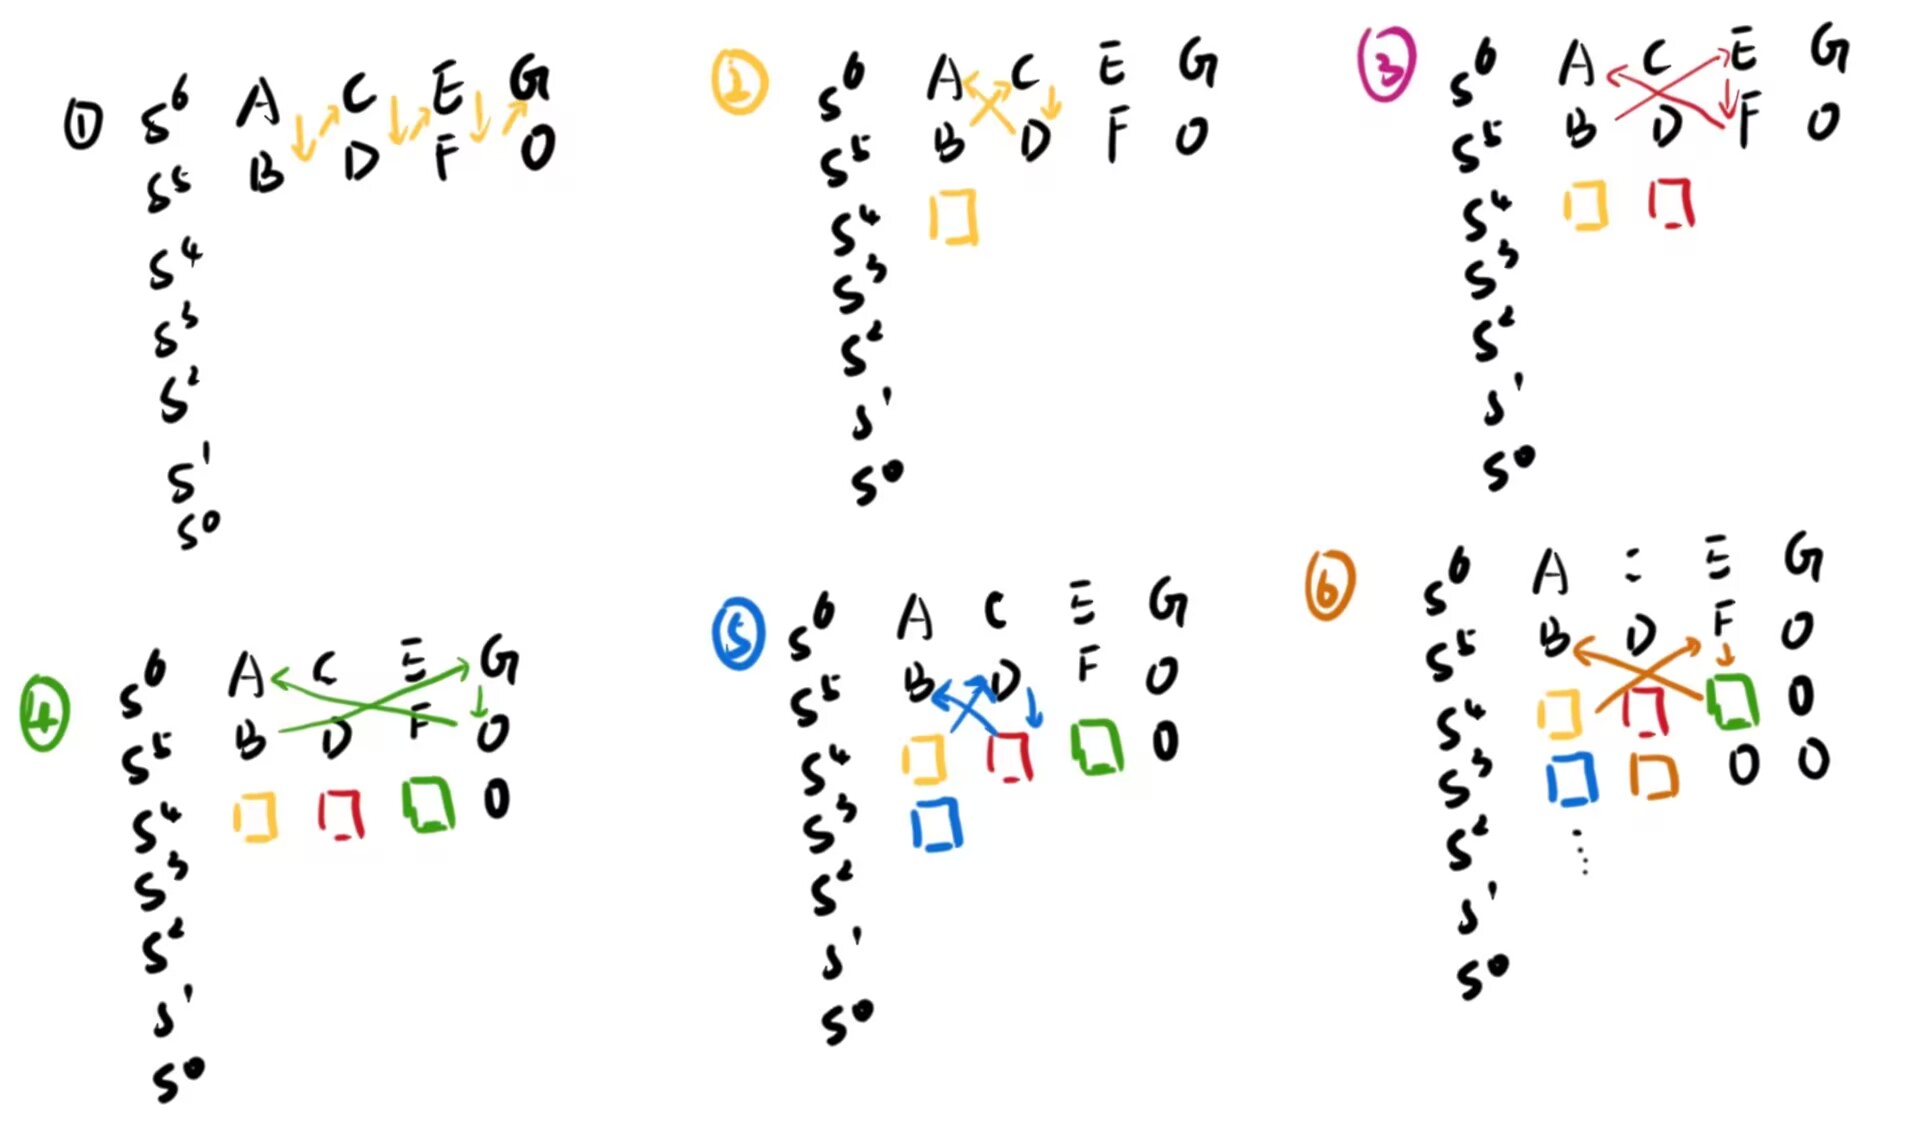 ①
s⁶ A C E G
s⁵ B D F 0
s⁴
s³
s²
s¹
s⁰
②
s⁶ A C E G
s⁵ B D F 0
s⁴
s³
s²
s¹
s⁰
③
s⁶ A C E G
s⁵ B D F 0
s⁴
s³
s²
s¹
s⁰
④
s⁶ A C E G
s⁵ B D F 0
s⁴ 0
s³
s²
s¹
s⁰
⑤
s⁶ A C E G
s⁵ B D F 0
s⁴ 0
s³
s²
s¹
s⁰
⑥
s⁶ A E G
s⁵ B D F 0
s⁴ 0
s³ 0 0
s² ⋮
s¹
s⁰